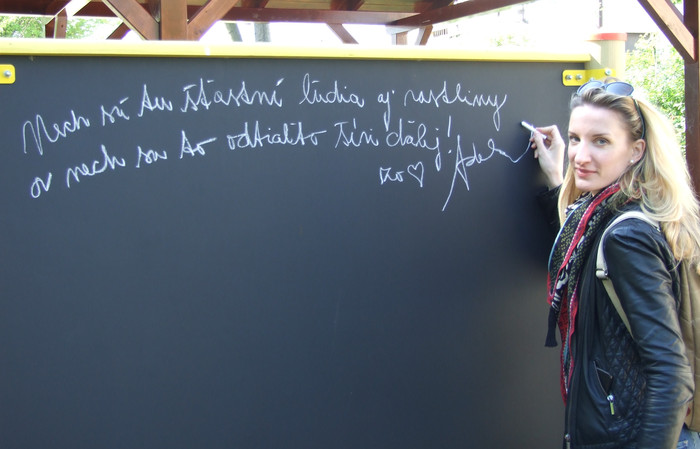 Nech sú tu šťastní ľudia aj rastliny
a nech sa to odtiaľto šíri ďalej! Adela
xo♡